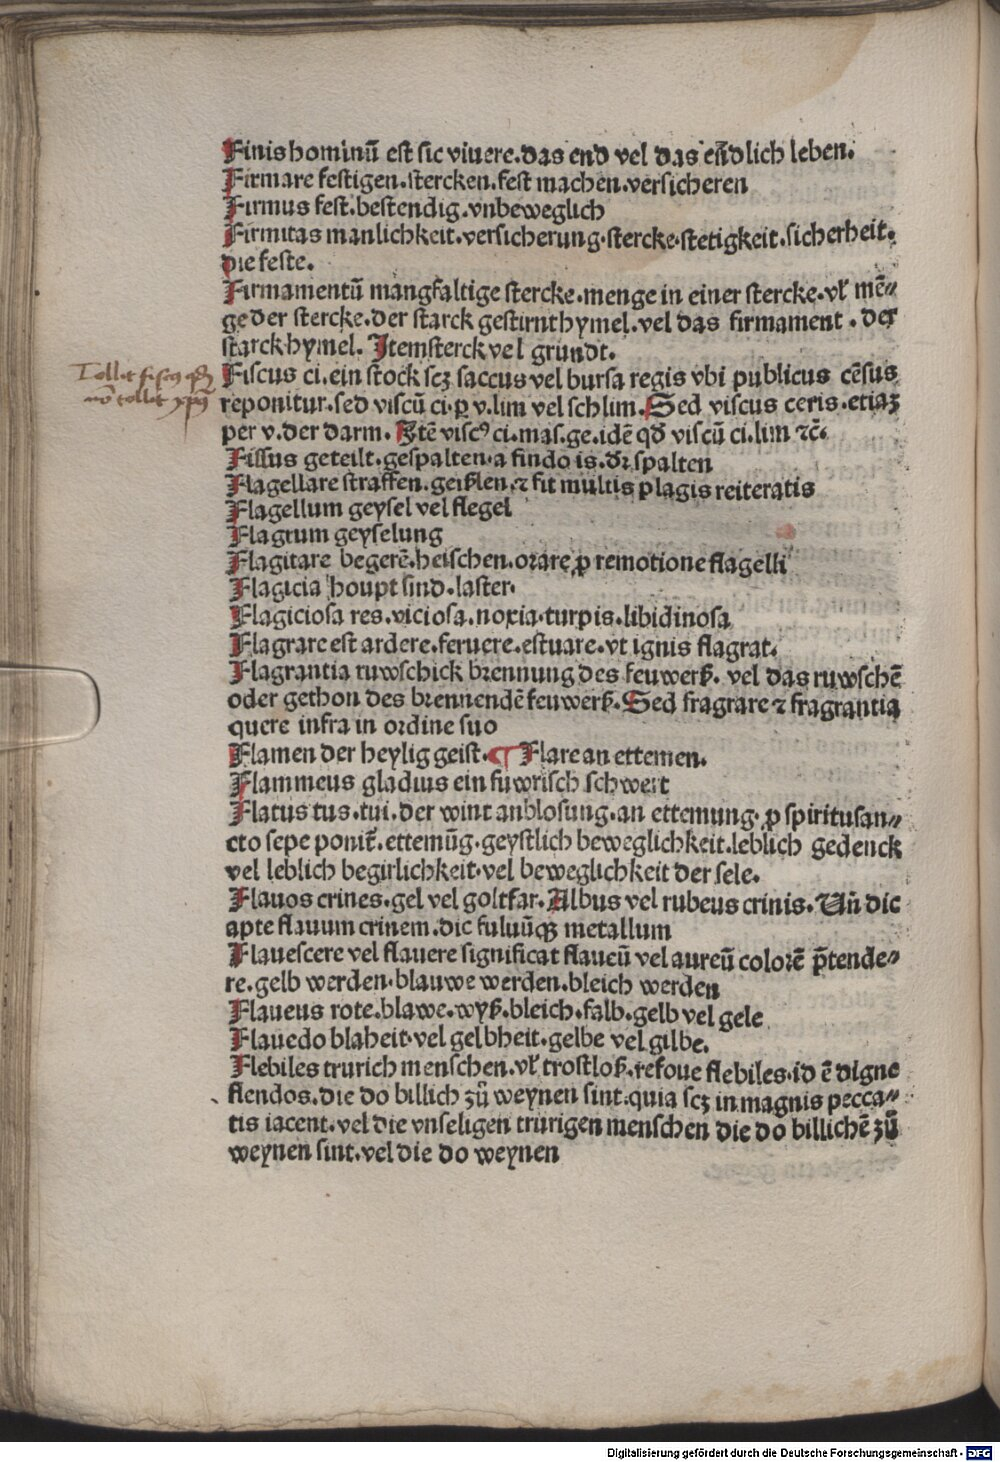 Finis hominū est sic viuere.das end vel das eñdlich leben.
Firmare festigen.stercken.fest machen.versicheren
Firmus fest.bestendig.vnbeweglich
Firmitas manlichkeit.versicherung.stercke.stetigkeit.sicherheit.
die feste.
Firmamentū mangfaltige stercke.menge in einer stercke.vł mē⸗
ge der stercke.der starck gestirnt hymel.vel das firmament.der
starck hymel. Item sterck vel grundt.
Tollit fiscꝰ qđ
nō tollit xpūs
Fiscus ci.ein stock scꝫ saccus vel bursa regis vbi publicus cēsus
reponitur.sed viscū ci.ꝑ v.lim vel schlim.Sed viscus ceris.etiaꝫ
per v.der darm. Itē viscꝰ ci.mas.ge.idē qđ viscū ci.lim ⁊c̄.
Fissus geteilt.gespalten.a findo is.dꝛ spalten
Flagellare straffen.geißlen.⁊ fit multis plagis reiteratis
Flagellum geysel vel flegel
Flagrum geyselung
Flagitare begerē.heischen.orare ꝓ remotione flagelli
Flagicia houpt sind.laster.
Flagiciosa res.viciosa.noxia.turpis.libidinosa
Flagrare est ardere.feruere.estuare.vt ignis flagrat.
Flagrantia ruwschick brennung des feuwerß. vel das ruwschē
oder gethon des brennendē feuwerß.Sed fragrare ⁊ fragrantia
quere infra in ordine suo
Flamen der heylig geist.¶ Flare an ettemen.
Flammeus gladius ein fuwrisch schwert
Flatus tus.tui.der wint anblosung.an ettemung.ꝓ spiritusan⸗
cto sepe ponit̄.ettemūg.geystlich beweglichkeit.leblich gedenck
vel leblich begirlichkeit.vel beweglichkeit der sele.
Flauos crines.gel vel goltfar.Albus vel rubeus crinis.Vñ dic
apte flauum crinem.dic fuluūqꝫ metallum
Flauescere vel flauere significat flaueū vel aureū colorē p̄tende⸗
re.gelb werden.blauwe werden.bleich werden
Flaueus rote.blawe.wyß.bleich.falb.gelb vel gele
Flauedo blaheit.vel gelbheit.gelbe vel gilbe.
Flebiles trurich menschen.vł trostloß.refoue flebiles.id ē digne
flendos.die do billich zů weynen sint.quia scꝫ in magnis pecca⸗
tis iacent.vel die vnseligen trurigen menschen die do billichē zů
weynen sint.vel die do weynen
Digitalisierung gefördert durch die Deutsche Forschungsgemeinschaft - DFG